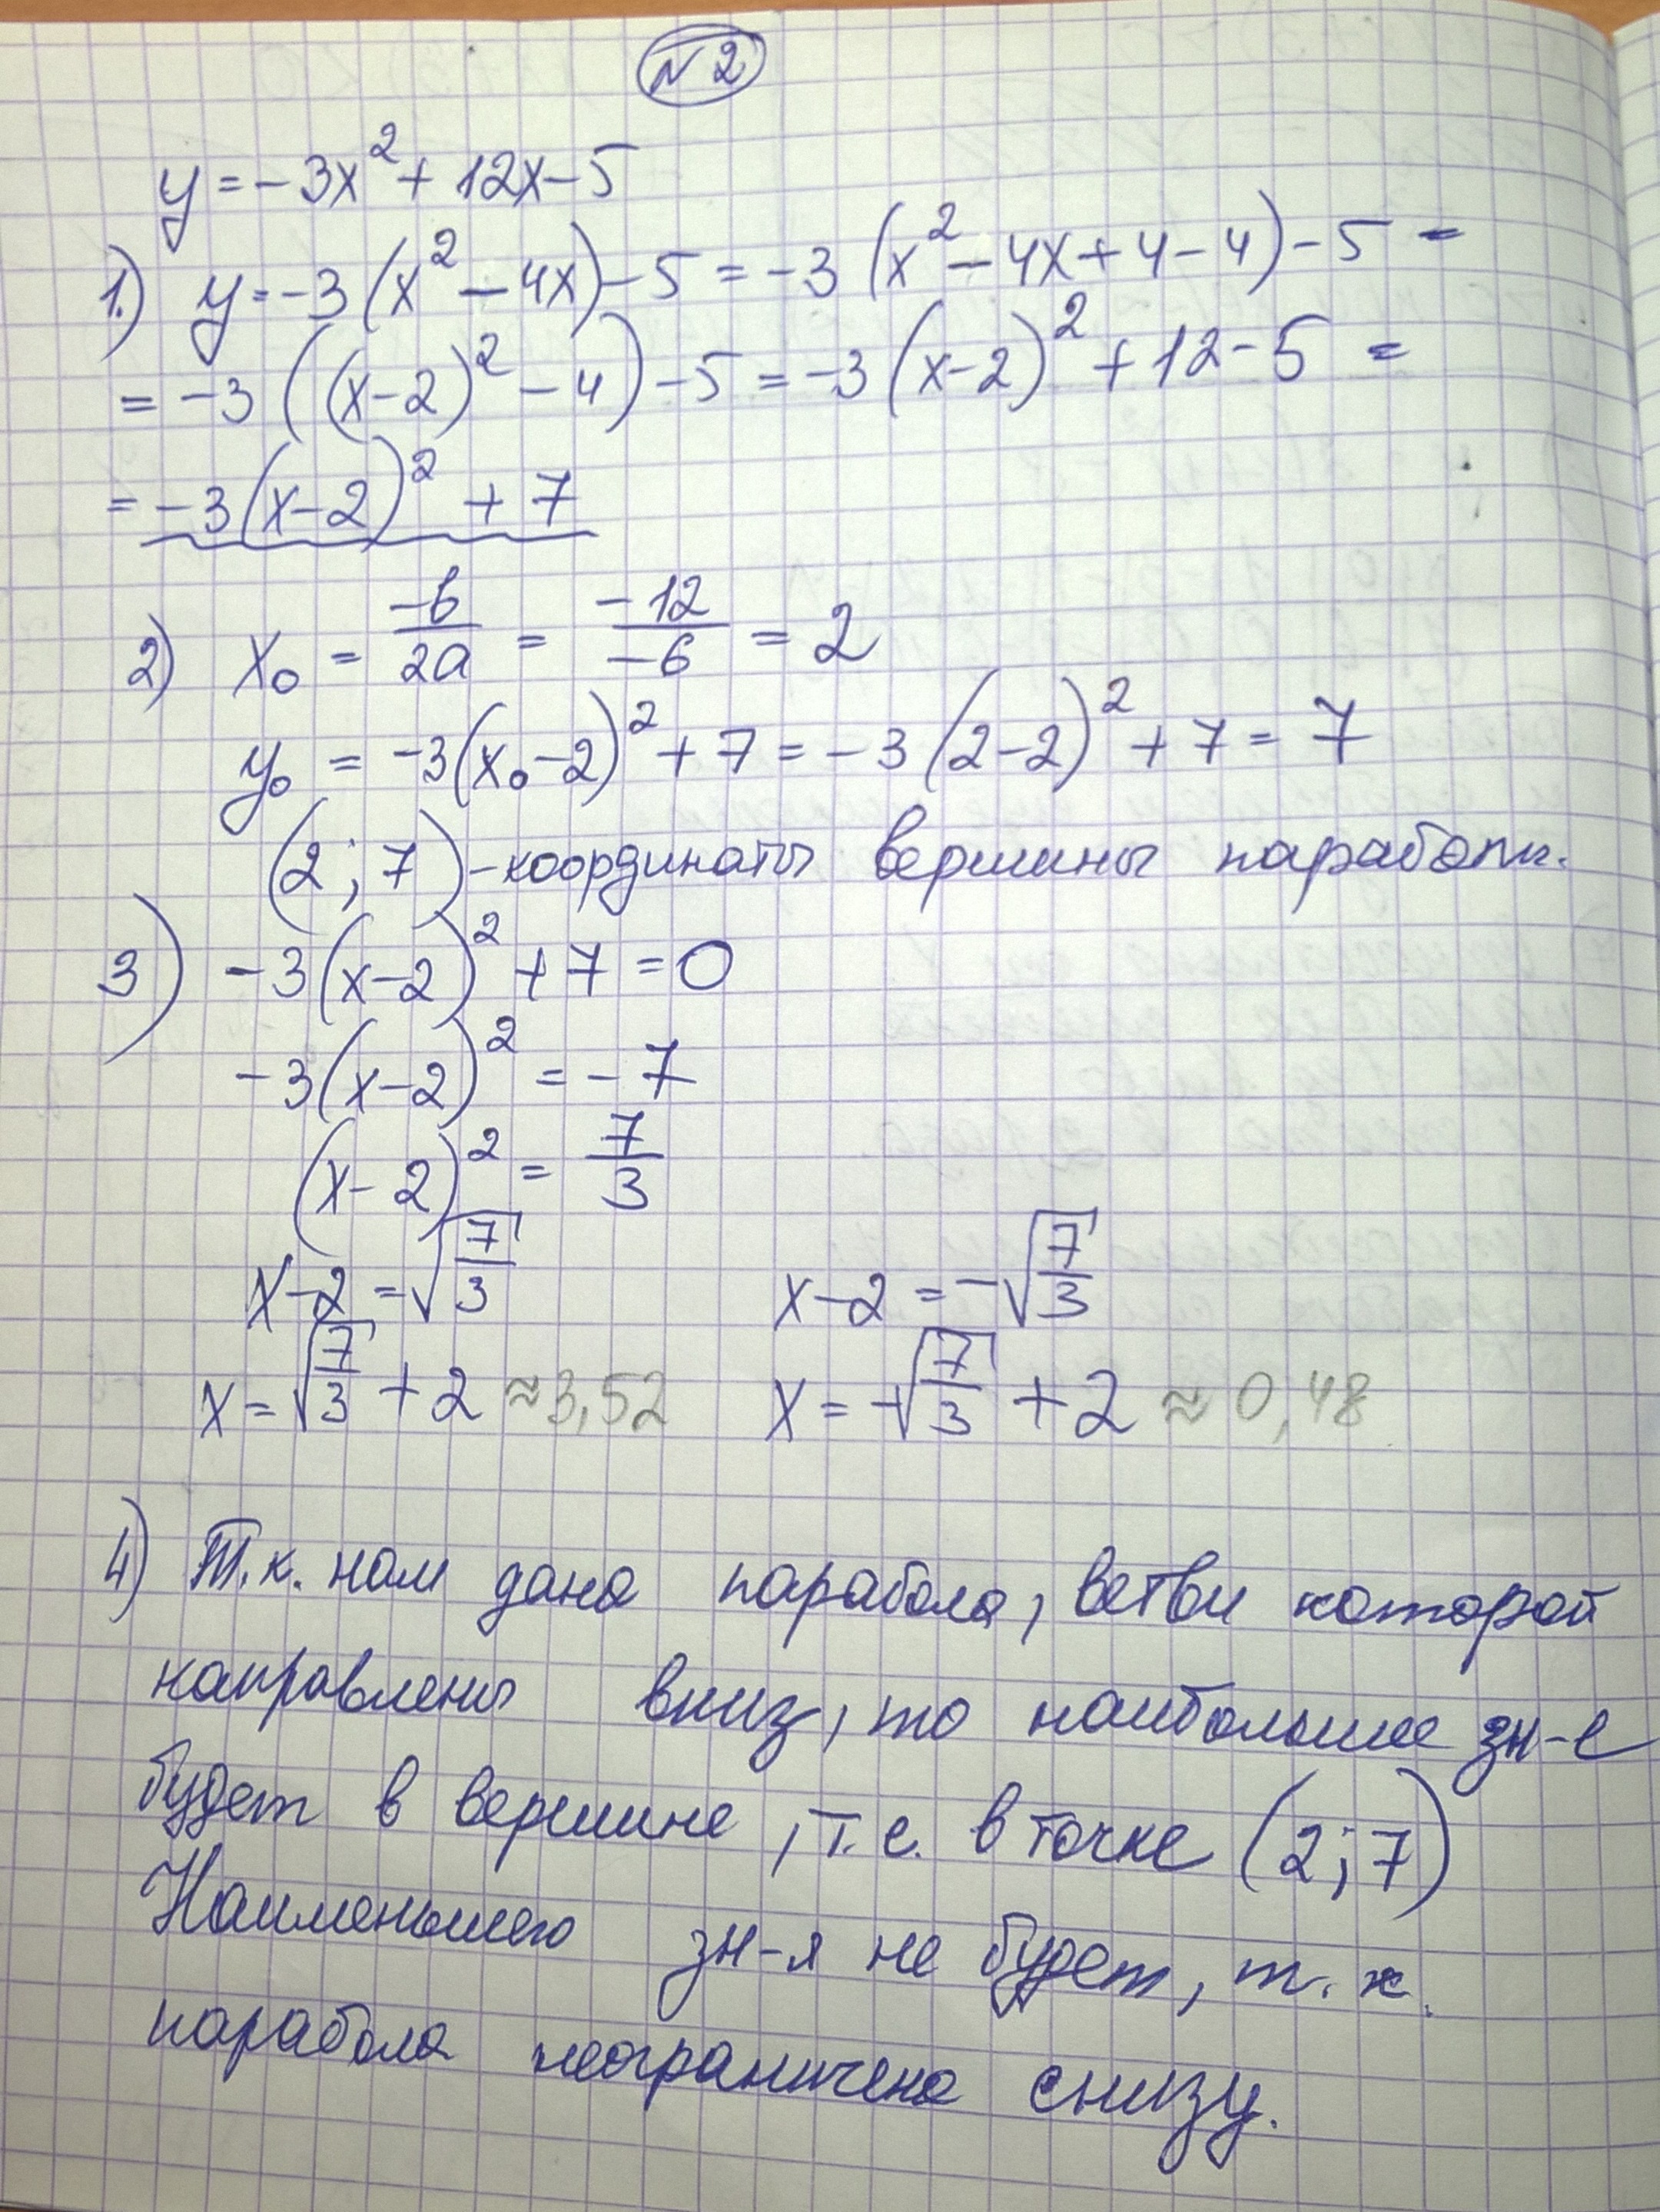 №2
y = -3x² + 12x - 5
1.) y = -3(x² - 4x) - 5 = -3(x² - 4x + 4 - 4) - 5 =
= -3((x-2)² - 4) - 5 = -3(x-2)² + 12 - 5 =
= -3(x-2)² + 7
2) x₀ = -b/2a = -12/-6 = 2
y₀ = -3(x₀-2)² + 7 = -3(2-2)² + 7 = 7
(2; 7) - координаты вершины параболы.
3) -3(x-2)² + 7 = 0
-3(x-2)² = -7
(x-2)² = 7/3
x-2 = √(7/3) x-2 = -√(7/3)
x = √(7/3) + 2 ≈ 3,52 x = -√(7/3) + 2 ≈ 0,48
4) Т.к. нам дана парабола, ветви которой
направлены вниз, то наибольшее зн-е
будет в вершине, т.е. в точке (2; 7)
Наименьшего зн-я не будет, т.к.
парабола неограничена снизу.